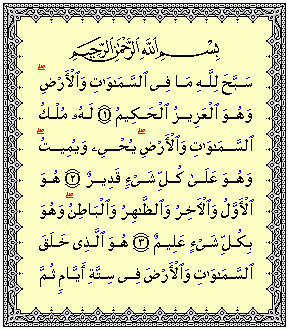 بِسْمِ ٱللَّهِ ٱلرَّحْمَٰنِ ٱلرَّحِيمِ
سَبَّحَ لِلَّهِ مَا فِى ٱلسَّمَٰوَٰتِ وَٱلْأَرْضِ ۖ
وَهُوَ ٱلْعَزِيزُ ٱلْحَكِيمُ ﴿١﴾ لَهُۥ مُلْكُ
ٱلسَّمَٰوَٰتِ وَٱلْأَرْضِ ۖ يُحْىِۦ وَيُمِيتُ ۖ
وَهُوَ عَلَىٰ كُلِّ شَىْءٍ قَدِيرٌ ﴿٢﴾ هُوَ
ٱلْأَوَّلُ وَٱلْءَاخِرُ وَٱلظَّٰهِرُ وَٱلْبَاطِنُ ۖ وَهُوَ
بِكُلِّ شَىْءٍ عَلِيمٌ ﴿٣﴾ هُوَ ٱلَّذِى خَلَقَ
ٱلسَّمَٰوَٰتِ وَٱلْأَرْضَ فِى سِتَّةِ أَيَّامٍ ثُمَّ